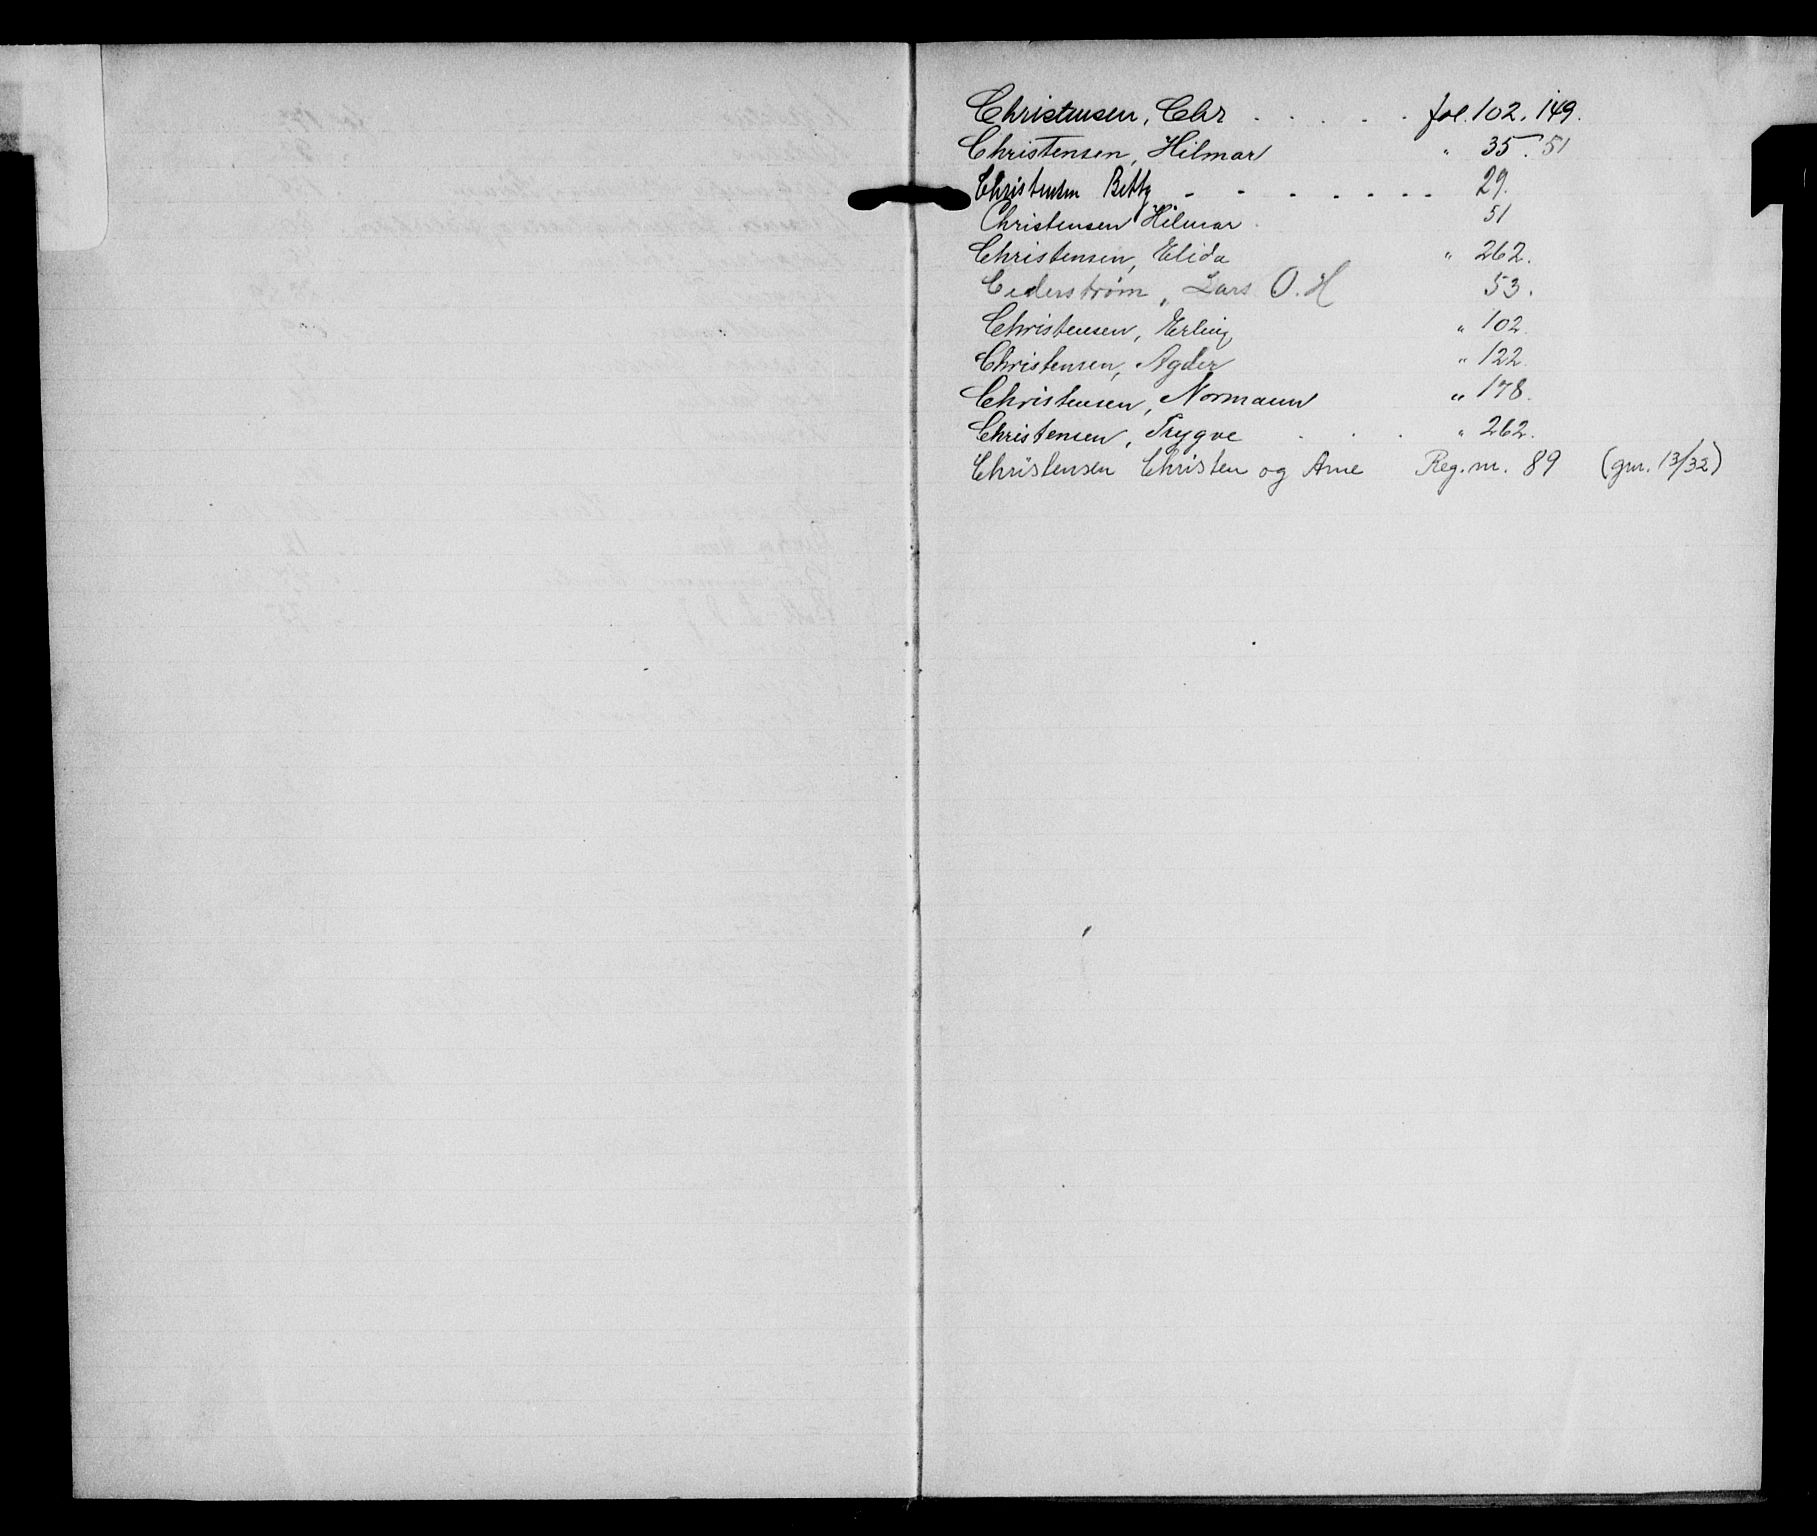 Christensen, Chr . . . . . fol. 102. 149.
Christensen, Hilmar " 35. 51
Christensen Betty - - - . . . . . 29.
Christensen Hilmar 51
Christensen, Elida " 262.
Cederstrøm, Lars O. H 53.
Christensen, Erling " 102.
Christensen, Agder " 122.
Christensen, Normann " 178.
Christensen, Trygve . . . " 262.
Christensen Christen og Arne Reg. nr. 89 (gnr. 13/32)